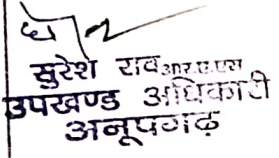 सुरेश राव आर.ए.एस
उपखण्ड अधिकारी
अनूपगढ़